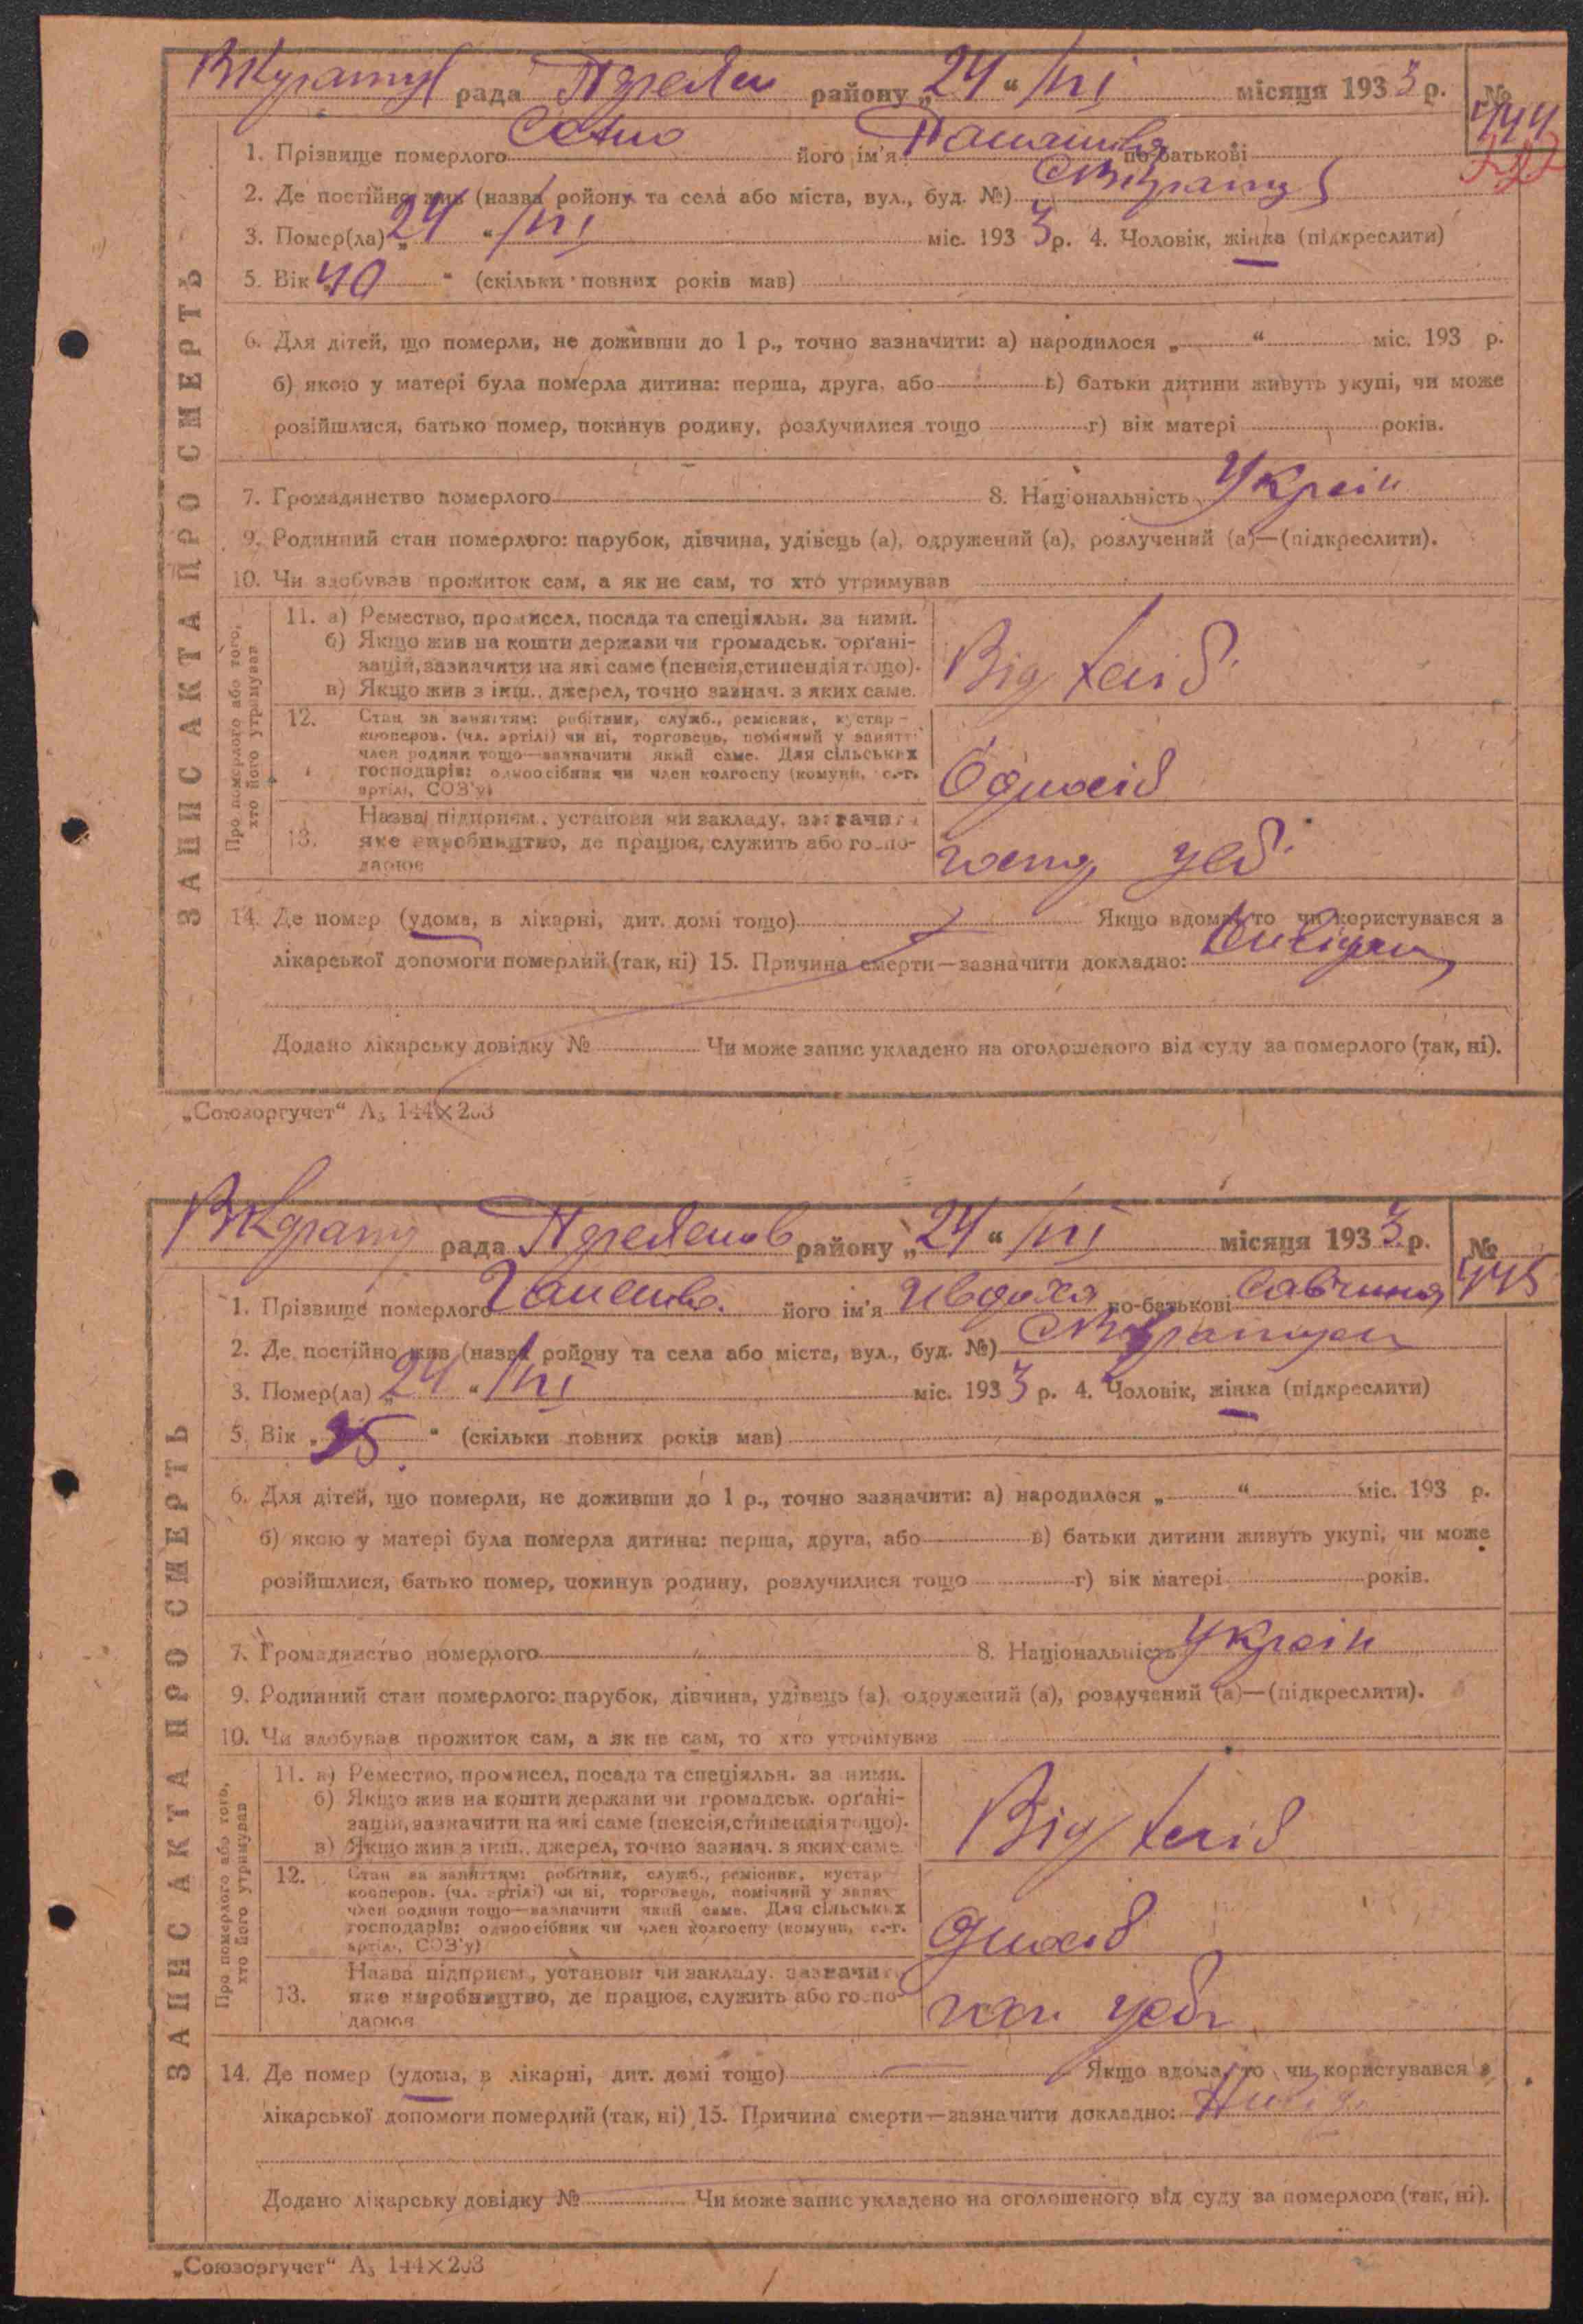 рада районy „24“ /III місяця 1933 р. №
444
1. Прізвище померлого його ім'я по-батькові
2. Де постійно жив (назва ройону та села або міста, вул., буд. №)
3. Помер(ла) „24“ /III міс. 1933 р. 4. Чоловік, жінка (підкреслити)
5. Вік „40“ (скільки повних років мав)
6. Для дітей, що померли, не доживши до 1 р., точно зазначити: а) народилося „ “ міс. 193 р.
б) якою у матері була померла дитина: перша, друга, або в) батьки дитини живуть укупі, чи може
розійшлися, батько помер, покинув родину, розлучилися тощо г) вік матері років.
7. Громадянство померлого 8. Національність Україн
9. Родинний стан померлого: парубок, дівчина, удівець (а), одружений (а), розлучений (а)—(підкреслити).
10. Чи здобував прожиток сам, а як не сам, то хто утримував
ЗАПИС АКТА ПРО СМЕРТЬ
Про померлого або того, хто його утримував
11. а) Ремество, промисел, посада та спеціяльн. за ними.
б) Якщо жив на кошти держави чи громадськ. органі-
зацій, зазначити на які саме (пенсія, стипендія тощо).
в) Якщо жив з інш. джерел, точно зазнач. з яких саме.
Від
12. Стан за заняттям: робітник, служб., ремісник, кустар
кооперов. (чл. артілі) чи ні, торговець, помічний у занятті
член родини тощо—зазначити який саме. Для сільських
господарів: одноосібник чи член колгоспу (комуни, с.-г.
артілі, СОЗ'у)
Одноосіб
13. Назва підприєм., установи чи закладу, зазначити
яке виробництво, де працює, служить або госпо-
дарює
14. Де помер (удома, в лікарні, дит. домі тощо) Якщо вдома, то чи користувався з
лікарської допомоги померлий (так, ні) 15. Причина смерти—зазначити докладно:
Додано лікарську довідку № Чи може запис укладено на оголошеного від суду за померлого (так, ні).
„Союзоргучет“ А₅ 144×203
рада району „24“ /III місяця 1933 р. №
445
1. Прізвище померлого його ім'я Ивдоха по-батькові
2. Де постійно жив (назва ройону та села або міста, вул., буд. №)
3. Помер(ла) „24“ /III міс. 1933 р. 4. Чоловік, жінка (підкреслити)
5. Вік „ “ (скільки повних років мав)
6. Для дітей, що померли, не доживши до 1 р., точно зазначити: а) народилося „ “ міс. 193 р.
б) якою у матері була померла дитина: перша, друга, або в) батьки дитини живуть укупі, чи може
розійшлися, батько помер, покинув родину, розлучилися тощо г) вік матері років.
7. Громадянство померлого 8. Національність Україн
9. Родинний стан померлого: парубок, дівчина, удівець (а), одружений (а), розлучений (а)—(підкреслити).
10. Чи здобував прожиток сам, а як не сам, то хто утримував
ЗАПИС АКТА ПРО СМЕРТЬ
Про померлого або того, хто його утримував
11. а) Ремество, промисел, посада та спеціяльн. за ними.
б) Якщо жив на кошти держави чи громадськ. органі-
зацій, зазначити на які саме (пенсія, стипендія тощо).
в) Якщо жив з інш. джерел, точно зазнач. з яких саме.
Від
12. Стан за заняттям: робітник, служб., ремісник, кустар
кооперов. (чл. артілі) чи ні, торговець, помічний у занят
член родини тощо—зазначити який саме. Для сільських
господарів: одноосібник чи член колгоспу (комуни, с.-г.
артілі, СОЗ'у)
13. Назва підприєм., установи чи закладу, зазначити
яке виробництво, де працює, служить або госпо-
дарює
14. Де помер (удома, в лікарні, дит. домі тощо) Якщо вдома, то чи користувався з
лікарської допомоги померлий (так, ні) 15. Причина смерти—зазначити докладно:
Додано лікарську довідку № Чи може запис укладено на оголошеного від суду за померлого (так, ні).
„Союзоргучет“ А₅ 144×203